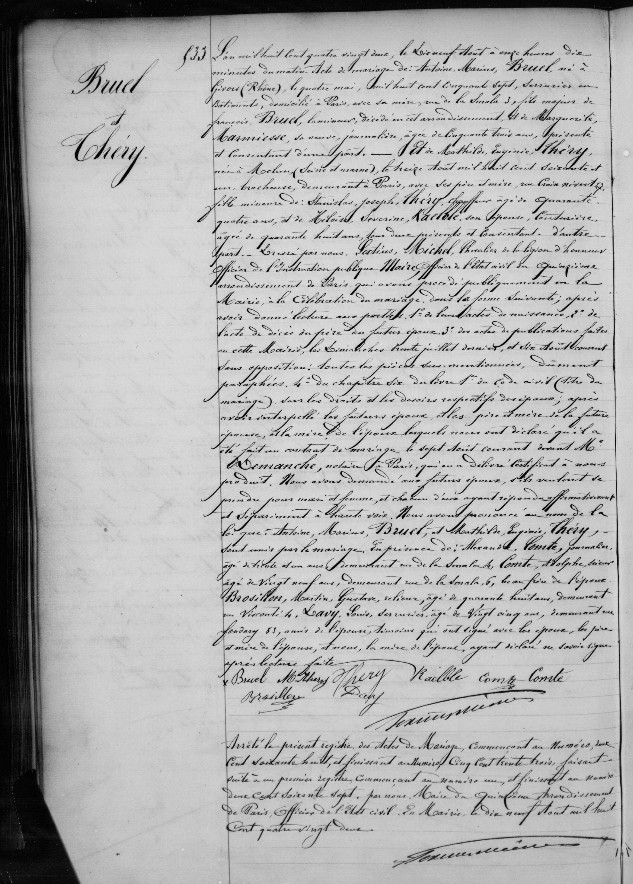 Bruel
et
Théry.
533
L'an mil huit cent quatre vingt deux, le dix neuf Août à onze heures dix
minutes du matin. Acte de mariage de: Antoine, Marius, Bruel, né à
Givors (Rhône), le quatre mai, mil huit cent cinquante sept, serrurier en
bâtiments, domicilié à Paris, avec sa mère, rue de la Smala 3, fils majeur de
françois Bruel, décédé en cet arrondissement, et de Marguerite,
Marmiesse, sa veuve, journalière, âgée de cinquante trois ans, présente
et consentant d'une part. — Et de Mathilde, Eugénie, Théry
née à Melun, (Seine et marne), le treize Août mil huit cent soixante et
un, brocheuse, demeurant à Paris, avec ses père et mère, rue Croix nivert
fille mineure de: Stanislas, Joseph, Théry, chauffeur âgé de quarante
quatre ans, et de Séverine, son épouse, couturière,
âgée de quarante huit ans, tous deux présents et consentant d'autre
part. — Dressé par nous, Michel, chevalier de la légion d'honneur
Officier de l'Instruction publique Maire, Officier de l'état civil du quinzième
arrondissement de Paris qui avons procédé publiquement en la
Mairie, à la célébration du mariage, dans la forme suivante; après
avoir donné lecture aux parties, 1° de leurs actes de naissance, 2° de
l'acte de décès du père du futur époux, 3° des actes de publications faites
en cette Mairie, les dimanches trente juillet dernier, et six Août courant
sans opposition; toutes les pièces sus-mentionnées, dûment
paraphées, 4° du chapitre six du livre 1er du code civil (titre du
mariage) sur les droits et les devoirs respectifs des époux; après
avoir interpellé les futurs époux et les père et mère de la future
épouse, et la mère de l'époux lesquels nous ont déclaré qu'il a
été fait un contrat de mariage le sept Août courant devant Me
Demanche, notaire à Paris, qui en a délivré certificat à nous
produit. Nous avons demandé aux futurs époux, s'ils veulent se
prendre pour mari et femme, et chacun d'eux ayant répondu affirmativement
et séparément à haute voix. Nous avons prononcé au nom de la
loi que: Antoine, Marius, Bruel, et Mathilde, Eugénie, Théry, -
sont unis par le mariage. En présence de: Alexandre, Comte, journalier,
âgé de trente et un ans, demeurant rue de la Smala 4, Comte, Adolphe,
âgé de vingt neuf ans, demeurant rue de la Smala, 6, beau frère de l'époux
Brosillon, Martin, Gustave, relieur, âgé de quarante huit ans, demeurant
rue Visconti 4, Davy, Louis, serrurier, âgé de vingt cinq ans, demeurant rue
fondary 53, amis de l'épouse, témoins qui ont signé avec les époux, les père
et mère de l'épouse, et nous, la mère de l'époux, ayant déclaré ne savoir signer
après lecture faite.
Bruel M Thery Thery Raëlble Comte Comte
Brosillon Davy
Arrêté le présent registre des Actes de Mariage, commençant au Numéro, deux
cent soixante huit, et finissant au Numéro Cinq Cent trente trois, faisant
suite à un premier registre commençant au numéro un, et finissant au numéro
deux cent soixante sept, par nous, Maire du quinzième Arrondissement
de Paris, Officier de l'état civil. En Mairie, le dix neuf Août mil huit
cent quatre vingt deux.